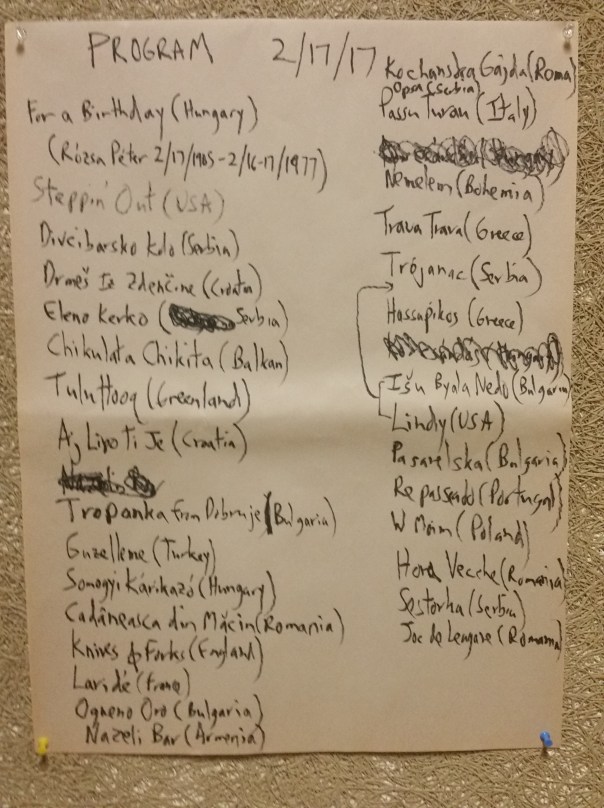 PROGRAM 2/17/17
For a Birthday (Hungary)
(Rózsa Péter 2/17/1905-2/16-17/1977)
Steppin' Out (USA)
Divcibarsko Kolo (Serbia)
Drmeš Iz Zdenčine (Croatia)
Eleno Kerko (Serbia)
Chikulata Chikita (Balkan)
Tulu Hooq (Greenland)
Aj Lipo Ti Je (Croatia)
Tropanka from Dobruje (Bulgaria)
Guzelleme (Turkey)
Somogyi Karikazó (Hungary)
Cadâneasca din Măcin (Romania)
Knives & Forks (England)
Laridé (France)
Ogneno Oro (Bulgaria)
Nazeli Bar (Armenia)
Gajda (Roma)
Opsa (Serbia)
Passu Turau (Italy)
Nemelem (Bohemia)
Trava Trava (Greece)
Trojanac (Serbia)
Hassapikos (Greece)
Išu Byala Nedo (Bulgaria)
Lindy (USA)
Pasarelska (Bulgaria)
Repasseado (Portugal)
W Moim (Poland)
Hora Vecche (Romania)
Sestorka (Serbia)
Joc de Leagane (Romania)